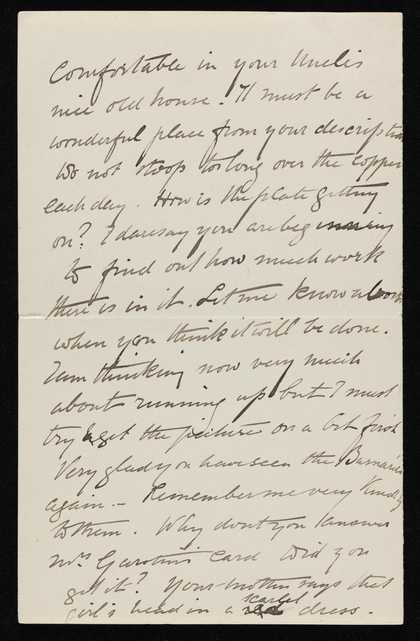 Comfortable in your Uncle's
nice old house. It must be a
wonderful place from your description
Do not stoop too long over the copper
each day. How is the plate getting
on? I daresay you are beginning
to find out how much work
there is in it. Let me know about
when you think it will be done.
I am thinking now very much
about running up but I must
try & get the picture on a bit first
Very glad you have seen the
again – Remember me very kindly
to them. Why dont you answer
Mrs card Did you
get it? Your mother says that
girl's head in a scarlet dress.